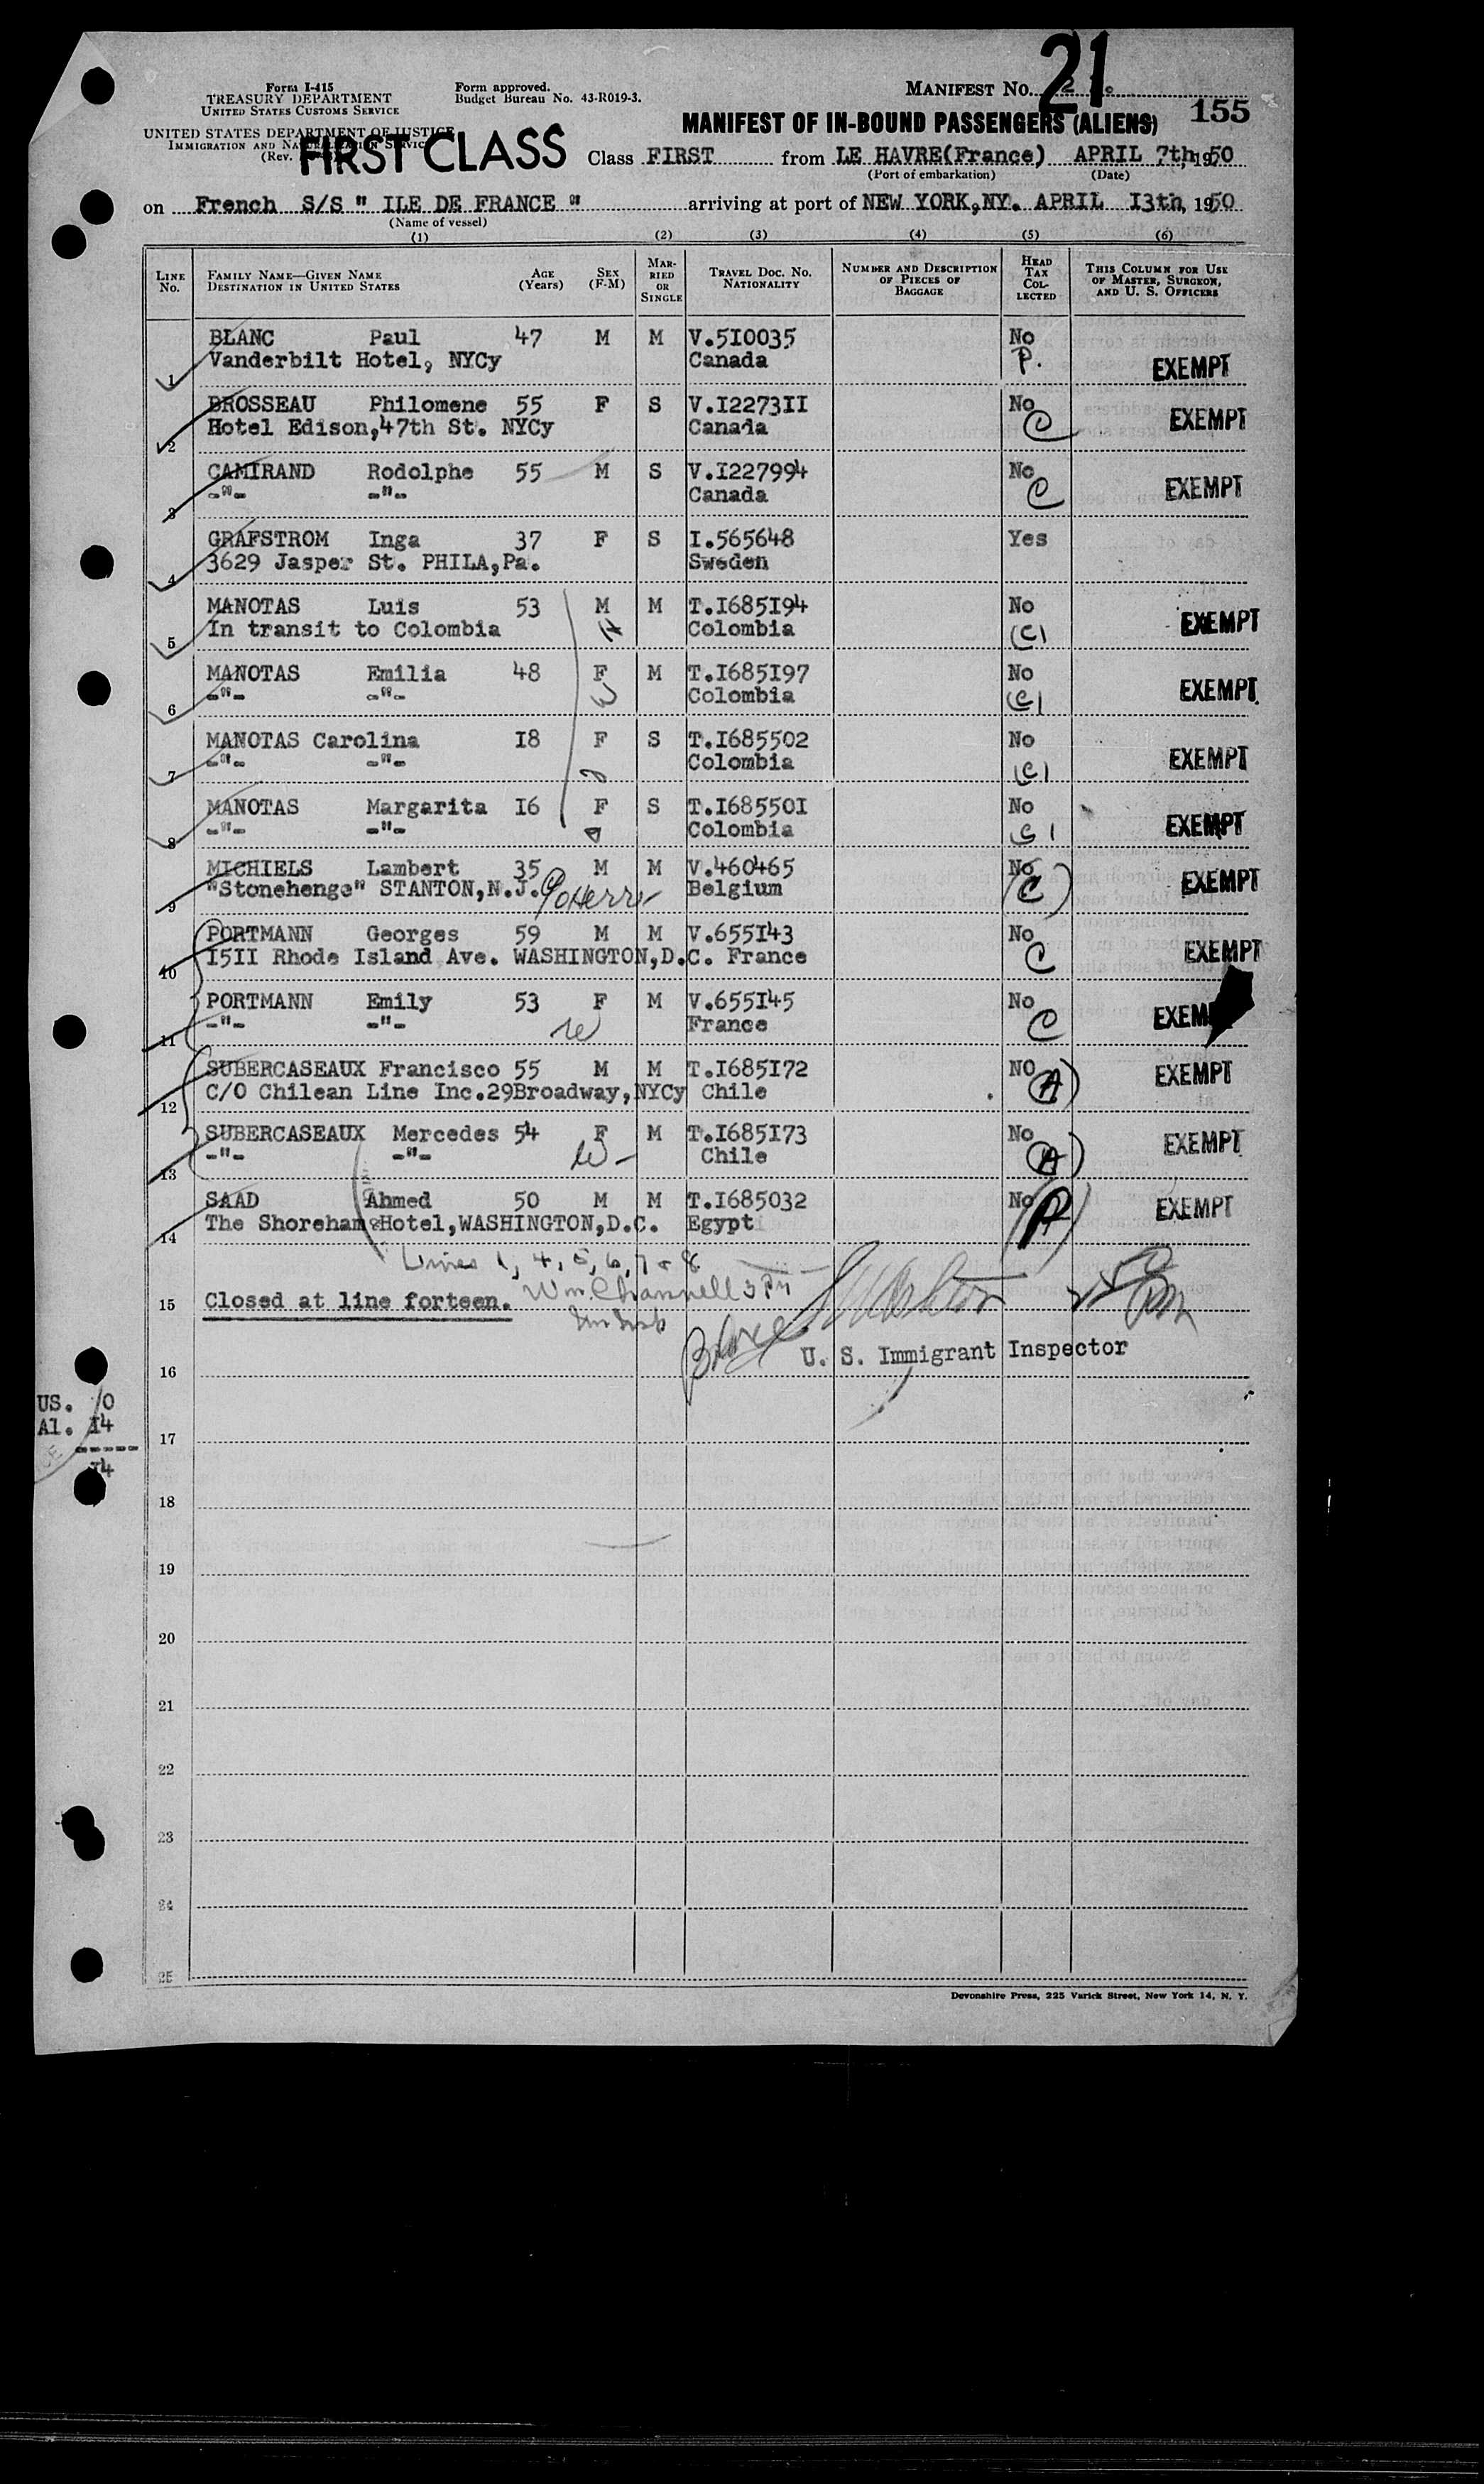 Form I-415
TREASURY DEPARTMENT
UNITED STATES CUSTOMS SERVICE
UNITED STATES DEPARTMENT OF JUSTICE
IMMIGRATION AND NATURALIZATION SERVICE
(Rev.
Form approved.
Budget Bureau No. 43-R019-3.
FIRST CLASS
MANIFEST NO. 21
155
MANIFEST OF IN-BOUND PASSENGERS (ALIENS)
Class FIRST from LE HAVRE(France) APRIL 7th, 1950
(Port of embarkation) (Date)
on French S/S " ILE DE FRANCE " arriving at port of NEW YORK,NY. APRIL I3th, 1950
(Name of vessel)
(1) (2) (3) (4) (5) (6)
LINE No. FAMILY NAME—GIVEN NAME DESTINATION IN UNITED STATES AGE (Years) SEX (F-M) MARRIED OR SINGLE TRAVEL DOC. NO. NATIONALITY NUMBER AND DESCRIPTION OF PIECES OF BAGGAGE HEAD TAX COLLECTED THIS COLUMN FOR USE OF MASTER, SURGEON, AND U. S. OFFICERS
BLANC Paul 47 M M V.5I0035 No
1 Vanderbilt Hotel, NYCy Canada P. EXEMPT
BROSSEAU Philomene 55 F S V.I2273II No
2 Hotel Edison,47th St. NYCy Canada C EXEMPT
CAMIRAND Rodolphe 55 M S V.I227994 No
3 -"- -"- Canada C EXEMPT
GRAFSTROM Inga 37 F S I.565648 Yes
4 3629 Jasper St. PHILA,Pa. Sweden
MANOTAS Luis 53 M M T.I685I94 No
5 In transit to Colombia Colombia (C) EXEMPT
MANOTAS Emilia 48 F M T.I685I97 No
6 -"- -"- Colombia (C) EXEMPT
MANOTAS Carolina I8 F S T.I685502 No
7 -"- -"- Colombia (C) EXEMPT
MANOTAS Margarita I6 F S T.I68550I No
8 -"- -"- Colombia EXEMPT
MICHIELS Lambert 35 M M V.460465 No
9 "Stonehenge" STANTON,N.J. Belgium (C) EXEMPT
PORTMANN Georges 59 M M V.655I43 No
10 I5II Rhode Island Ave. WASHINGTON,D.C. France C EXEMPT
PORTMANN Emily 53 F M V.655I45 No
11 -"- -"- W France C EXEMPT
SUBERCASEAUX Francisco 55 M M T.I685I72 NO
12 C/O Chilean Line Inc.29Broadway,NYCy Chile A) EXEMPT
SUBERCASEAUX Mercedes 54 F M T.I685I73 No
13 -"- -"- W- Chile A) EXEMPT
SAAD Ahmed 50 M M T.I685032 No
14 The Shoreham Hotel,WASHINGTON,D.C. Egypt (A) EXEMPT
Lines 1, 4, 5, 6, 7 & 8
15 Closed at line forteen. Wm Channell
U. S. Immigrant Inspector
16
US. 0
Al. I4
-----
I4
17
18
19
20
21
22
23
24
25
Devonshire Press, 225 Varick Street, New York 14, N. Y.